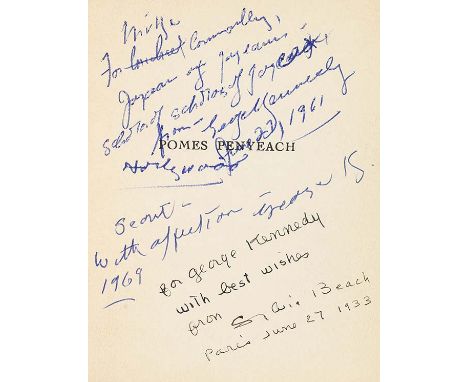 Mike
For Connolly,
Joycean of Joyceans –
Scholar of scholars of Joyce,
from – George Kennedy
Hollywood 1961
POMES PENYEACH
Scout –
With affection George K.
1969
for George Kennedy
with best wishes
from Sylvia Beach
Paris June 27 1933